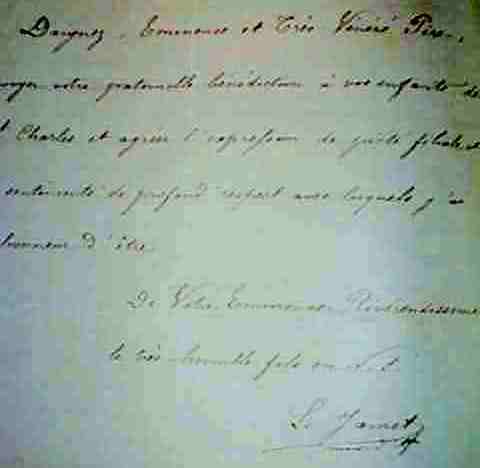 Daignez, Eminence et Très Vénéré Père,
votre paternelle bénédiction à vos enfants de
Charles et agréer l'expression de piété filiale et
sentiments de profond respect avec lesquels j'ai
honneur d'être
De Votre Eminence Révérendissime
le très humble fils en N.S.
S. Jamet